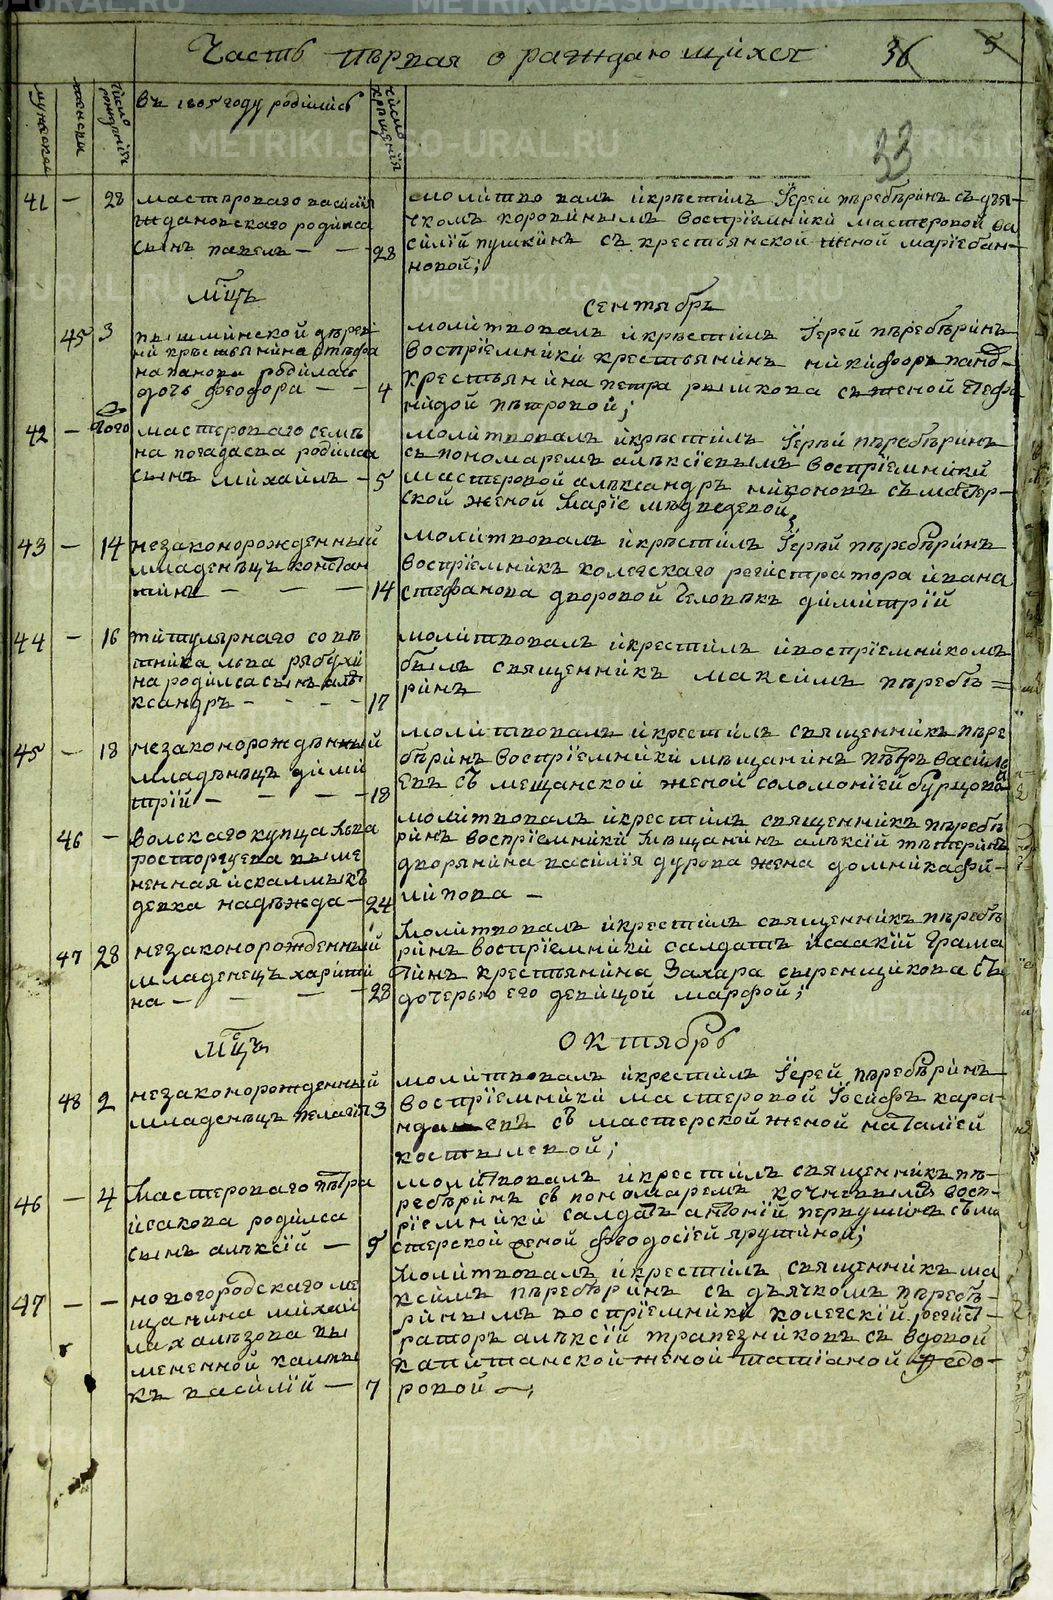 Часть первая о раждающихся 36 5
33
мужескъ
женска
число рождения
въ 1805 году родились
число крещения
41 — 28 мастероваго василия
ждановскаго родился
сынъ павелъ — — 28
молитвовалъ икрестилъ Іерей перебѣринъ съ дья-
чкомъ коровинымъ восприемники мастеровой ва
силій пушкинъ съ крестьянской женой маріе бан-
новой;
мцъ сентябрь
45 3 пышминской дерев
ни крестьянина стефа
на панова родилась
дочь феодора — — 4
молитвовалъ икрестилъ Іерей перебѣринъ
восприемники крестьянинъ никифоръ пано-
крестьянина петра рычкова съ женой стефа
нидой петровой;
42 — того мастероваго семе
на погадаева родился
сынъ михайлъ — 5
молитвовалъ икрестилъ Іерей перебѣринъ
съ пономаремъ алексіевымъ восприемники
мастеровой александръ никоновъ съ мастер-
ской женой маріе медведевой;
43 — 14 незаконорожденный
младенецъ констан
тинъ — — — 14
молитвовалъ икрестилъ Іерей перебѣринъ
восприемникъ колегскаго регистратора ивана
стефанова дворовой человекъ димитрій
44 — 16 титулярнаго сове
тника льва рябухи
на родился сынъ але
ксандръ — — — 17
молитвовалъ икрестилъ ивосприемникомъ
былъ священникъ максимъ перебѣ=
ринъ
45 — 18 незаконорожденный
младенецъ дими
трій — — — 18
молитвовалъ икрестилъ священникъ пере
бѣринъ восприемники мещанинъ петръ василь
евъ съ мещанской женой соломоніей бурцова
46 — волскаго купца льва
расторгуева выме
ненная искалмыкъ
девка надежда — 24
молитвовалъ икрестилъ священникъ перебѣ
ринъ восприемники мещанинъ алексій тетеринъ
дворянина василия дурова жена домника фи-
липова —
47 28 незаконорожденный
младенецъ харити
на — — — 28
молитвовалъ икрестилъ священникъ перебѣ
ринъ восприемники салдатъ исаакій грама
тинъ крестянина захара сыренщикова съ
дочерью его девицой марфой;
мцъ октябрь
48 2 незаконорожденный
младенецъ пелагія 3
молитвовалъ икрестилъ Іерей перебѣринъ
восприемники мастеровой Іосифъ кара-
ндашевъ съ мастерской женой наталіей
костылевой;
46 — 4 мастероваго петра
исакова родился
сынъ алексій — 5
молитвовалъ икрестилъ священникъ пе-
ребѣринъ съ пономаремъ кочневымъ восп-
ріемники салдатъ антоній первушинъ съ ма
стерской женой феодосіей ярутиной;
47 — — новогородскаго ме
щанина михай
ла халезова вы
мененной калмы
къ василій — 7
молитвовалъ икрестилъ священникъ ма
ксимъ перебѣринъ съ дьячкомъ перебѣ-
ринымъ восприемники колегскій регист-
раторъ алексій трапезниковъ съ вдовой
капитанской женой татіаной федо-
ровой